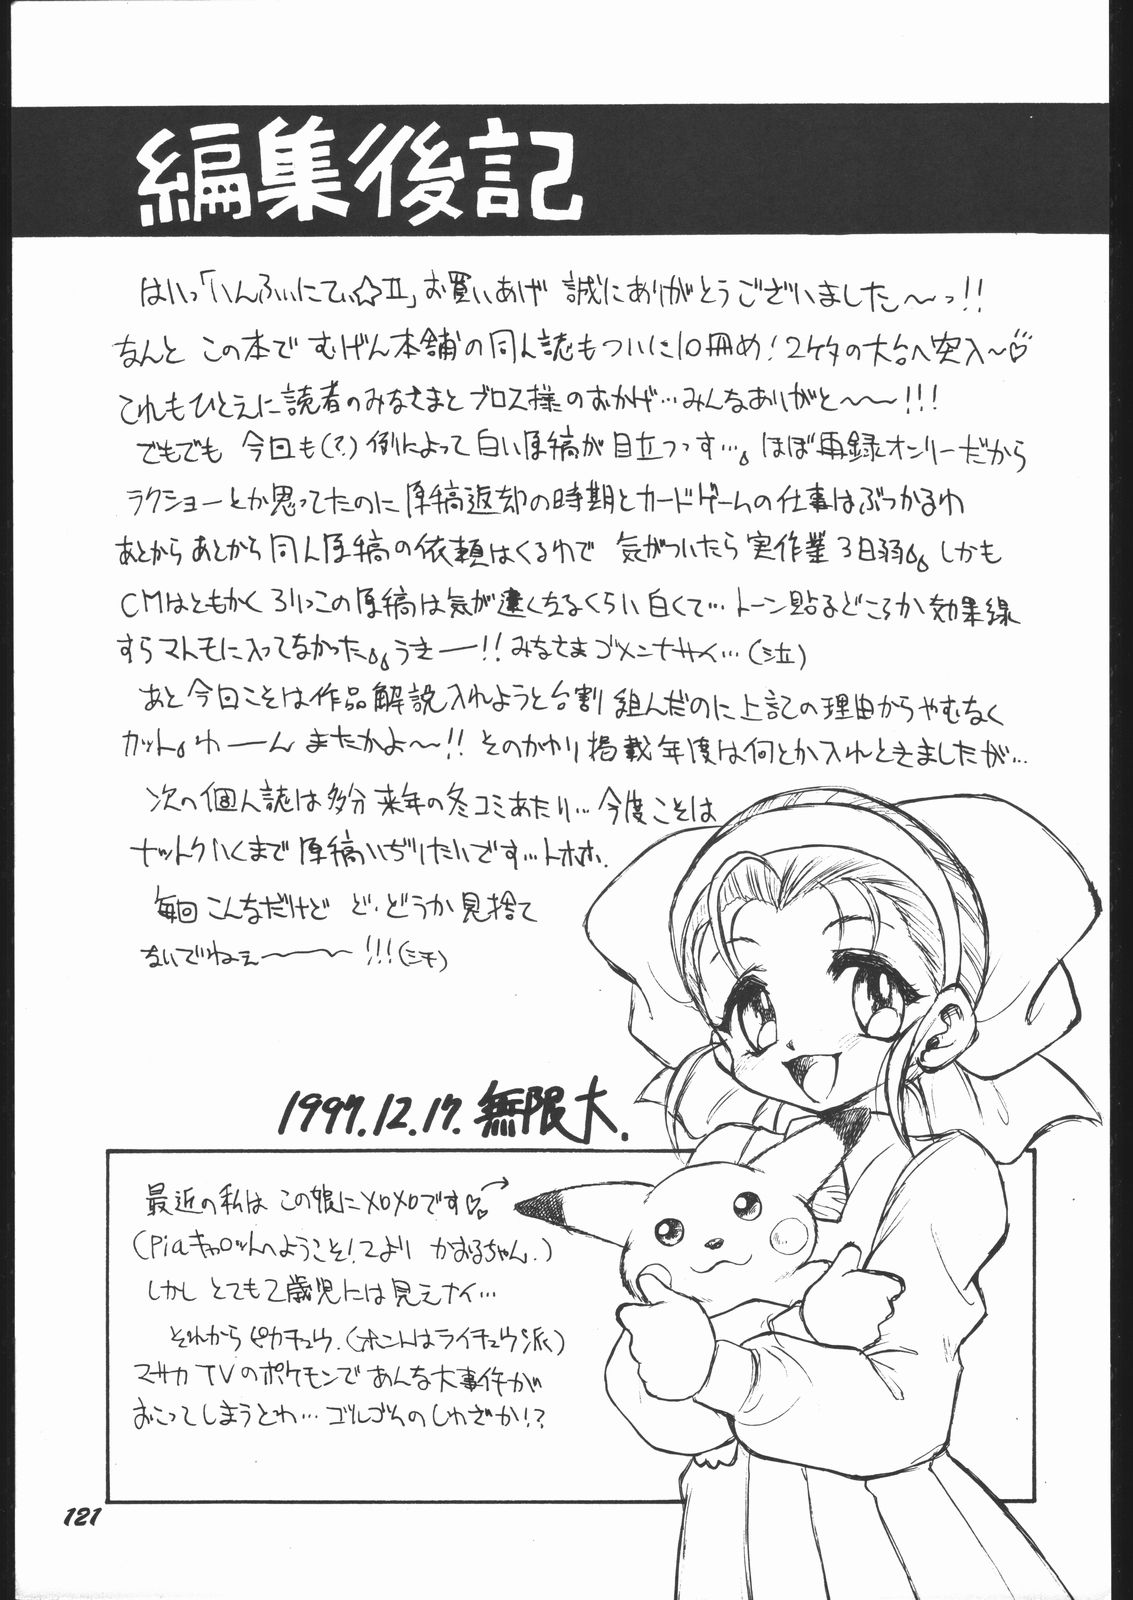 編集後記
はいっ「いんふぃにてぃ☆Ⅱ」お買いあげ 誠にありがとうございました〜っ!!
なんと この本で むげん本舗の同人誌もついに10冊め!2ケタの大台へ突入〜♡
これもひとえに読者のみなさまとブロス様のおかげ…みんなありがと〜〜〜!!!
でもでも 今回も(?)例によって白い原稿が目立つっす…。ほぼ再録オンリーだから
ラクショーとか思ってたのに原稿返却の時期とカードゲームの仕事はぶっかるわ
あとからあとから同人原稿の依頼はくるわで 気がついたら実作業3日弱。しかも
CMはともかく ろりっこの原稿は気が遠くなるくらい白くて…トーン貼るどころか効果線
すらマトモに入ってなかった。うきーー!!みなさまゴメンナサイ…(泣)
あと今回こそは作品解説入れようと台割組んだのに上記の理由からやむなく
カット。わーーん またかよ〜!!そのかわり掲載年度は何とか入れときましたが…
次の個人誌は多分来年の冬コミあたり…今度こそは
ナットクいくまで原稿いぢりたいです…トホホ.
毎回こんなだけど ど、どうか見捨て
ないでねぇ〜〜〜!!!(汗)
1997.12.17.無限大.
最近の私は この娘にメロメロです♡→
(Piaキャロットへようこそ!2より かおるちゃん.)
しかしとても2歳児には見えナイ…
それからピカチュウ.(ホントはライチュウ派)
マサカTVのポケモンであんな大事件が
おこってしまうとわ…ゴルゴムのしわざか!?
121